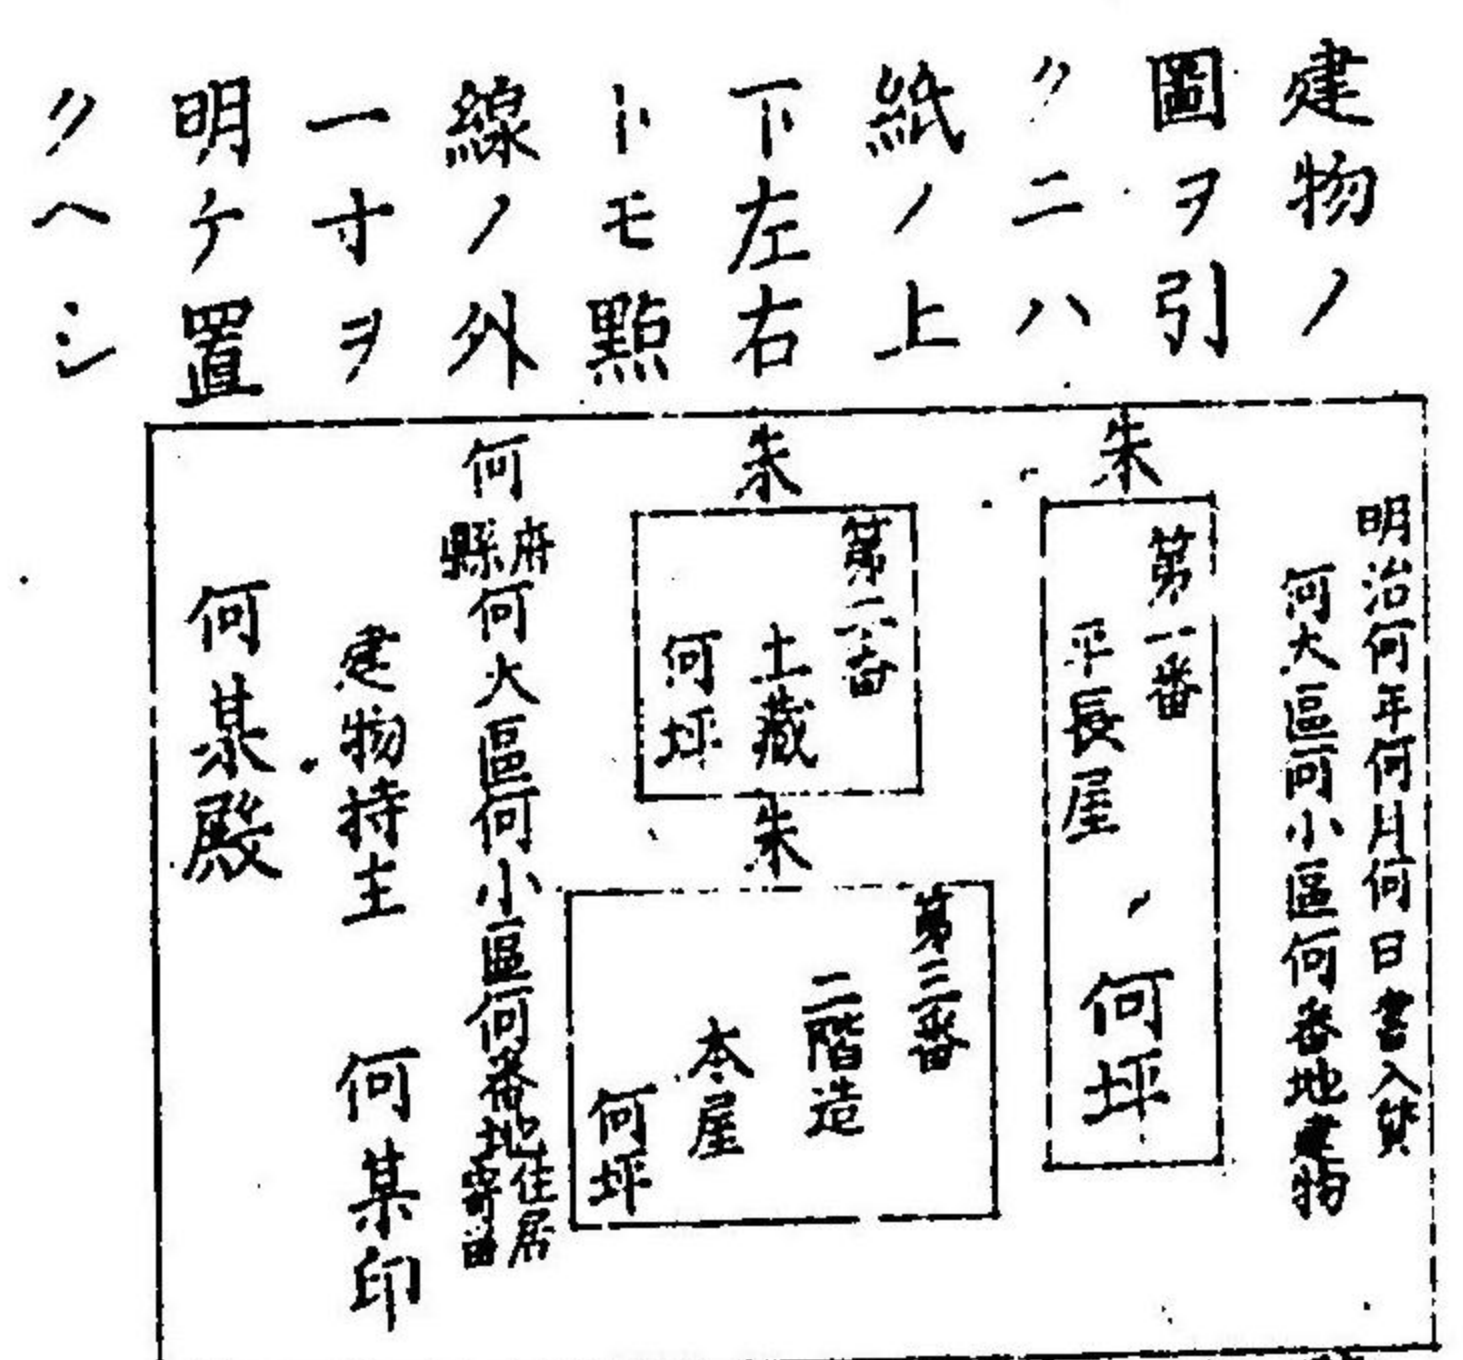 建物ノ
圖ヲ引
クニハ
紙ノ上
下左右
トモ點
線ノ外
一寸ヲ
明ケ置
クヘシ
明治何年何月何日書入質
何大區何小區何番地建物
朱
第一番
平長屋
何坪
朱
第二番
土藏
何坪
朱
第三番
二階造
本屋
何坪
何府縣何大區何小區何番地住居寄留
建物持主 何某印
何某殿